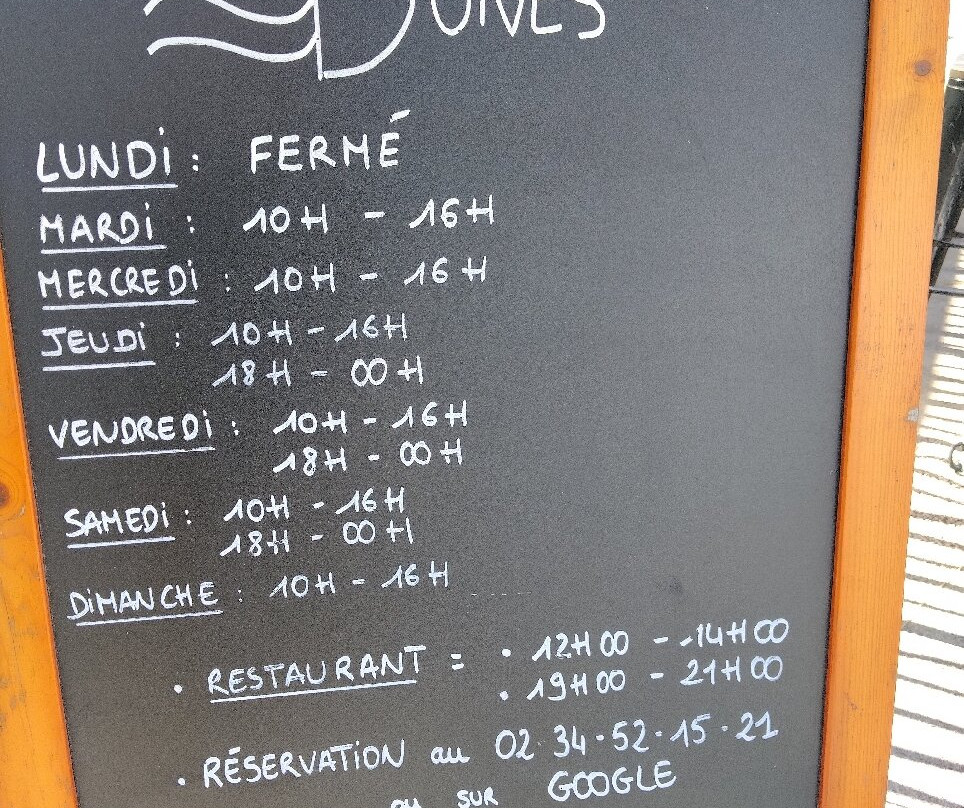 DUNES
LUNDI : FERMÉ
MARDI : 10H - 16H
MERCREDI : 10H - 16H
JEUDI : 10H - 16H
18H - 00H
VENDREDI : 10H - 16H
18H - 00H
SAMEDI : 10H - 16H
18H - 00H
DIMANCHE : 10H - 16H
• RESTAURANT = • 12H00 - 14H00
• 19H00 - 21H00
• RÉSERVATION au 02.34.52.15.21
ou SUR GOOGLE